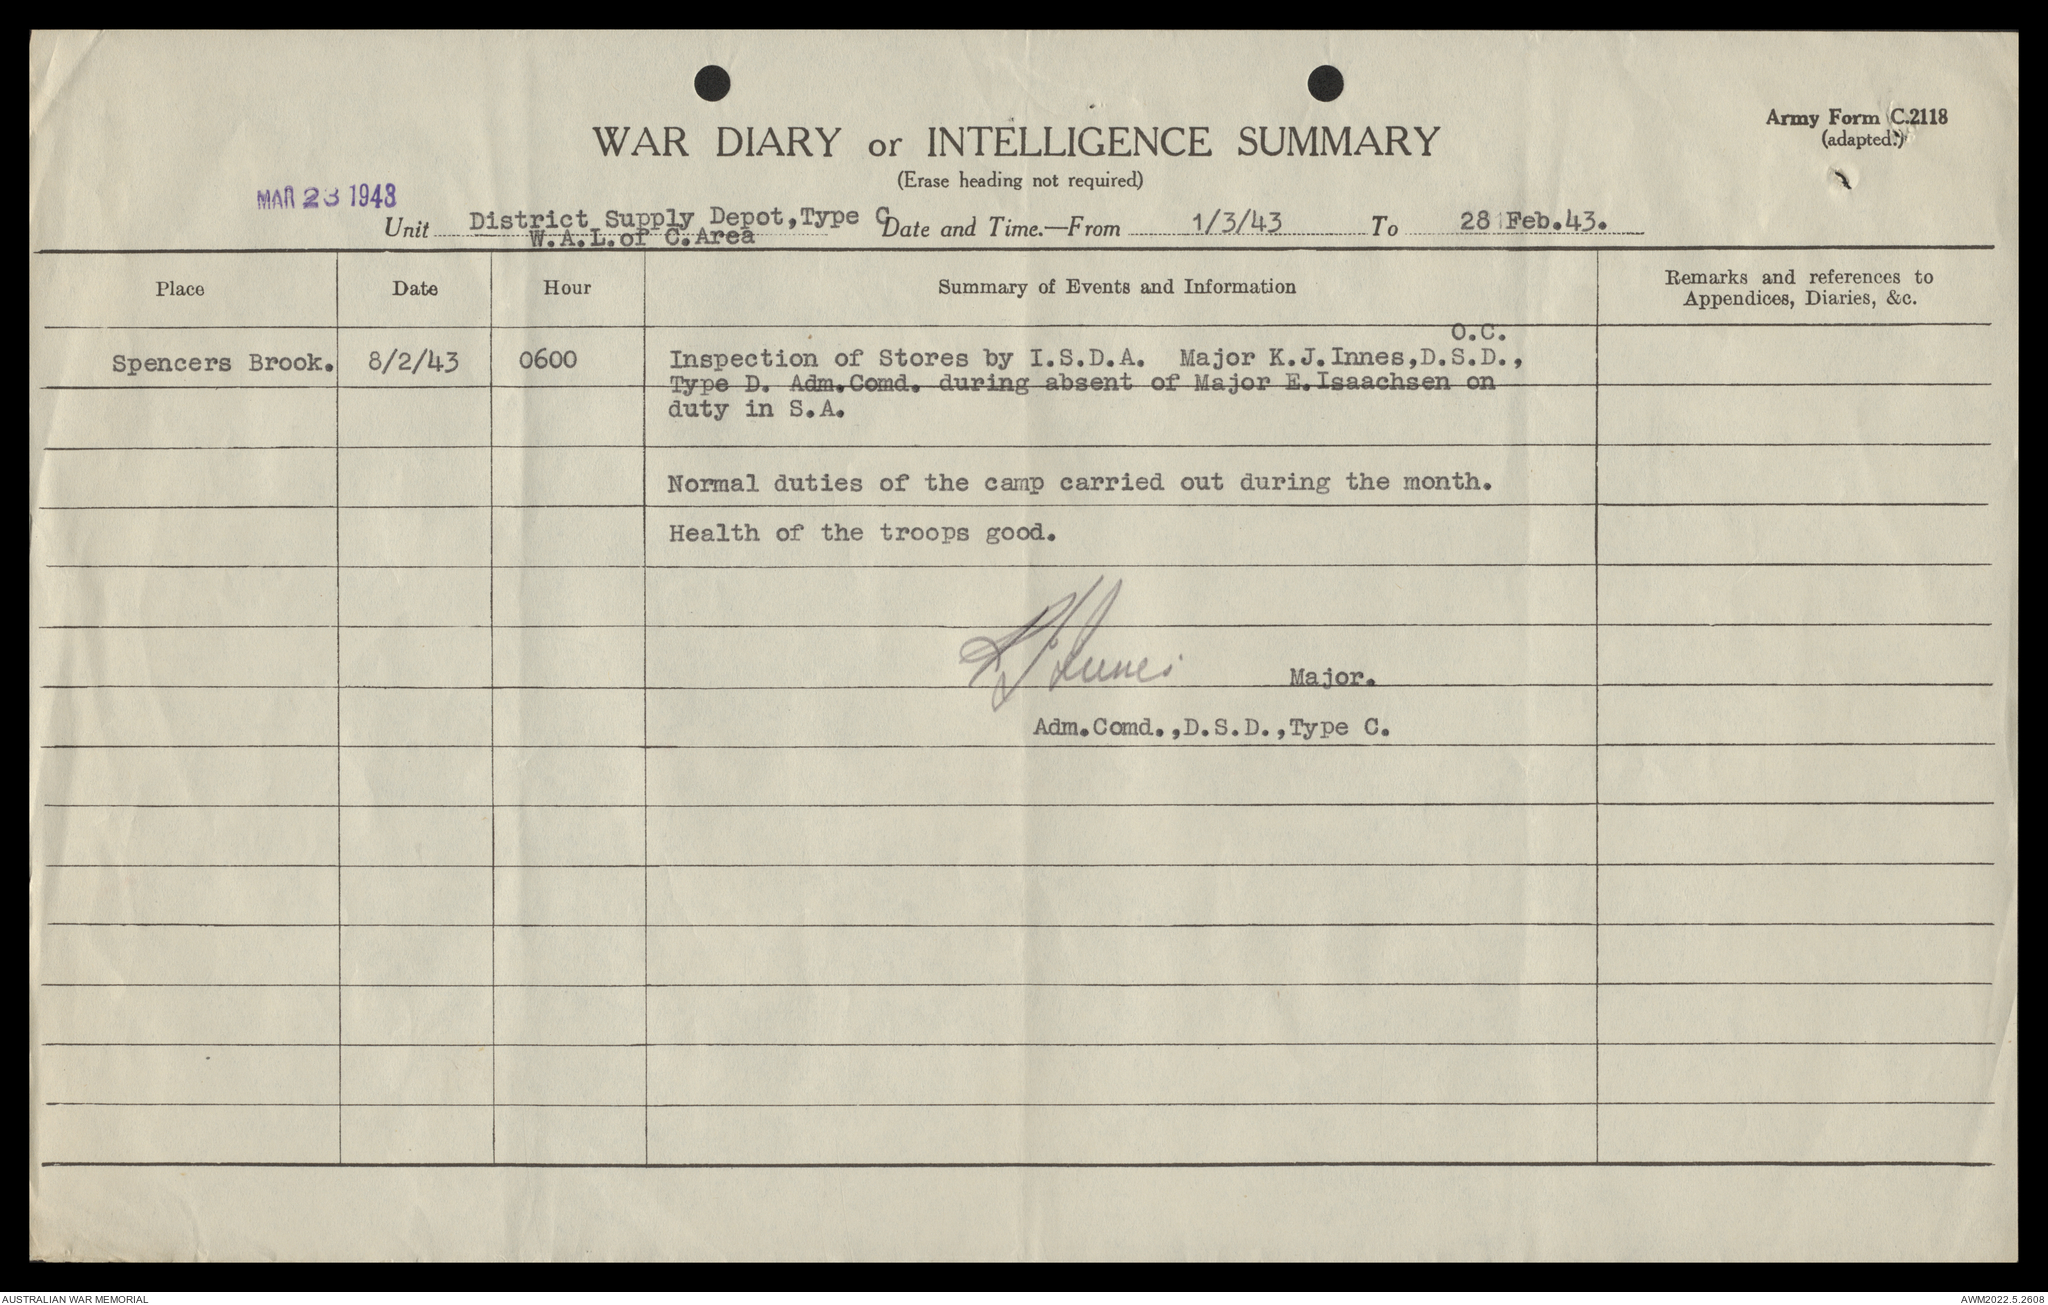 Army Form C.2118
(adapted.)
WAR DIARY or INTELLIGENCE SUMMARY
(Erase heading not required)
MAR 23 1943
Unit District Supply Depot,Type C Date and Time.—From 1/3/43 To 28 Feb.43.
W.A.L.of C.Area
Place Date Hour Summary of Events and Information Remarks and references to
Appendices, Diaries, &c.
O.C.
Spencers Brook. 8/2/43 0600 Inspection of Stores by I.S.D.A. Major K.J.Innes,D.S.D.,
Type D. Adm.Comd. during absent of Major E.Isaachsen on
duty in S.A.
Normal duties of the camp carried out during the month.
Health of the troops good.
KJInnes Major.
Adm.Comd.,D.S.D.,Type C.
AUSTRALIAN WAR MEMORIAL AWM2022.5.2608